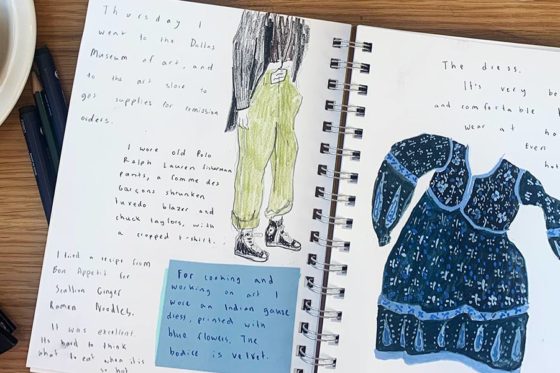 Thursday I
went to the Dallas
Museum of art, and
to the art store to
get supplies for
orders.
I wore old Polo
Ralph Lauren fisherman
pants, a comme des
Garçons shrunken
tuxedo blazer and
chuck taylors, with
a cropped t-shirt.
I tried a recipe from
Bon Appetit for
Scallion Ginger
Ramen Noodles.
It was excellent.
Its hard to think
what to eat when it is
so hot
For cooking and
working on art I
wore an Indian gauze
dress, printed with
blue flowers. The
bodice is velvet.
The dress.
It's very be
and comfortable
wear at ho
Even
hot